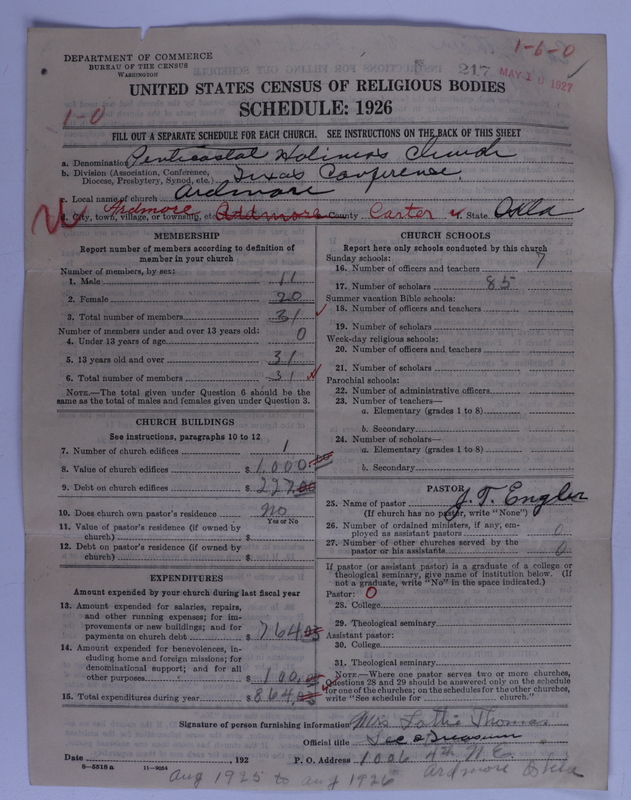 1-6-0
DEPARTMENT OF COMMERCE
BUREAU OF THE CENSUS
WASHINGTON
217
MAY 10 1927
UNITED STATES CENSUS OF RELIGIOUS BODIES
SCHEDULE: 1926
1-0
FILL OUT A SEPARATE SCHEDULE FOR EACH CHURCH. SEE INSTRUCTIONS ON THE BACK OF THIS SHEET
a. Denomination Penticostal Holiness Church
b. Division (Association, Conference, Diocese, Presbytery, Synod, etc.) Texas Conference
c. Local name of church Ardmore
d. City, town, village, or township, etc. Ardmore Addmore County Carter State Okla
MEMBERSHIP
Report number of members according to definition of
member in your church
Number of members, by sex:
1. Male 11
2. Female 20
3. Total number of members 31
Number of members under and over 13 years old:
4. Under 13 years of age 0
5. 13 years old and over 31
6. Total number of members 31
NOTE.—The total given under Question 6 should be the
same as the total of males and females given under Question 3.
CHURCH BUILDINGS
See instructions, paragraphs 10 to 12
7. Number of church edifices 1
8. Value of church edifices $ 1,000.00
9. Debt on church edifices $ 227.00
10. Does church own pastor's residence no
Yes or No
11. Value of pastor's residence (if owned by
church) $
12. Debt on pastor's residence (if owned by
church) $
EXPENDITURES
Amount expended by your church during last fiscal year
13. Amount expended for salaries, repairs,
and other running expenses; for im-
provements or new buildings; and for
payments on church debt $ 764.05
14. Amount expended for benevolences, in-
cluding home and foreign missions; for
denominational support; and for all
other purposes $ 100.00
15. Total expenditures during year $ 864.05
CHURCH SCHOOLS
Report here only schools conducted by this church
Sunday schools:
16. Number of officers and teachers 7
17. Number of scholars 85
Summer vacation Bible schools:
18. Number of officers and teachers
19. Number of scholars
Week-day religious schools:
20. Number of officers and teachers
21. Number of scholars
Parochial schools:
22. Number of administrative officers
23. Number of teachers—
a. Elementary (grades 1 to 8)
b. Secondary
24. Number of scholars—
a. Elementary (grades 1 to 8)
b. Secondary
PASTOR
25. Name of pastor J. T. Engler
(If church has no pastor, write "None")
26. Number of ordained ministers, if any, em-
ployed as assistant pastors 0
27. Number of other churches served by the
pastor or his assistants 0
If pastor (or assistant pastor) is a graduate of a college or
theological seminary, give name of institution below. (If
not a graduate, write "No" in the space indicated.)
Pastor: 0
28. College
29. Theological seminary
Assistant pastor:
30. College
31. Theological seminary
NOTE.—Where one pastor serves two or more churches,
Questions 28 and 29 should be answered only on the schedule
for one of the churches; on the schedules for the other churches,
write "See schedule for church."
Signature of person furnishing information Mrs Lottie Thomas
Official title Sec & Treasurer
Date , 192 P. O. Address 1006 4th N.E.
8—5518a 11—9054
Aug 1925 to Aug 1926 Ardmore Okla